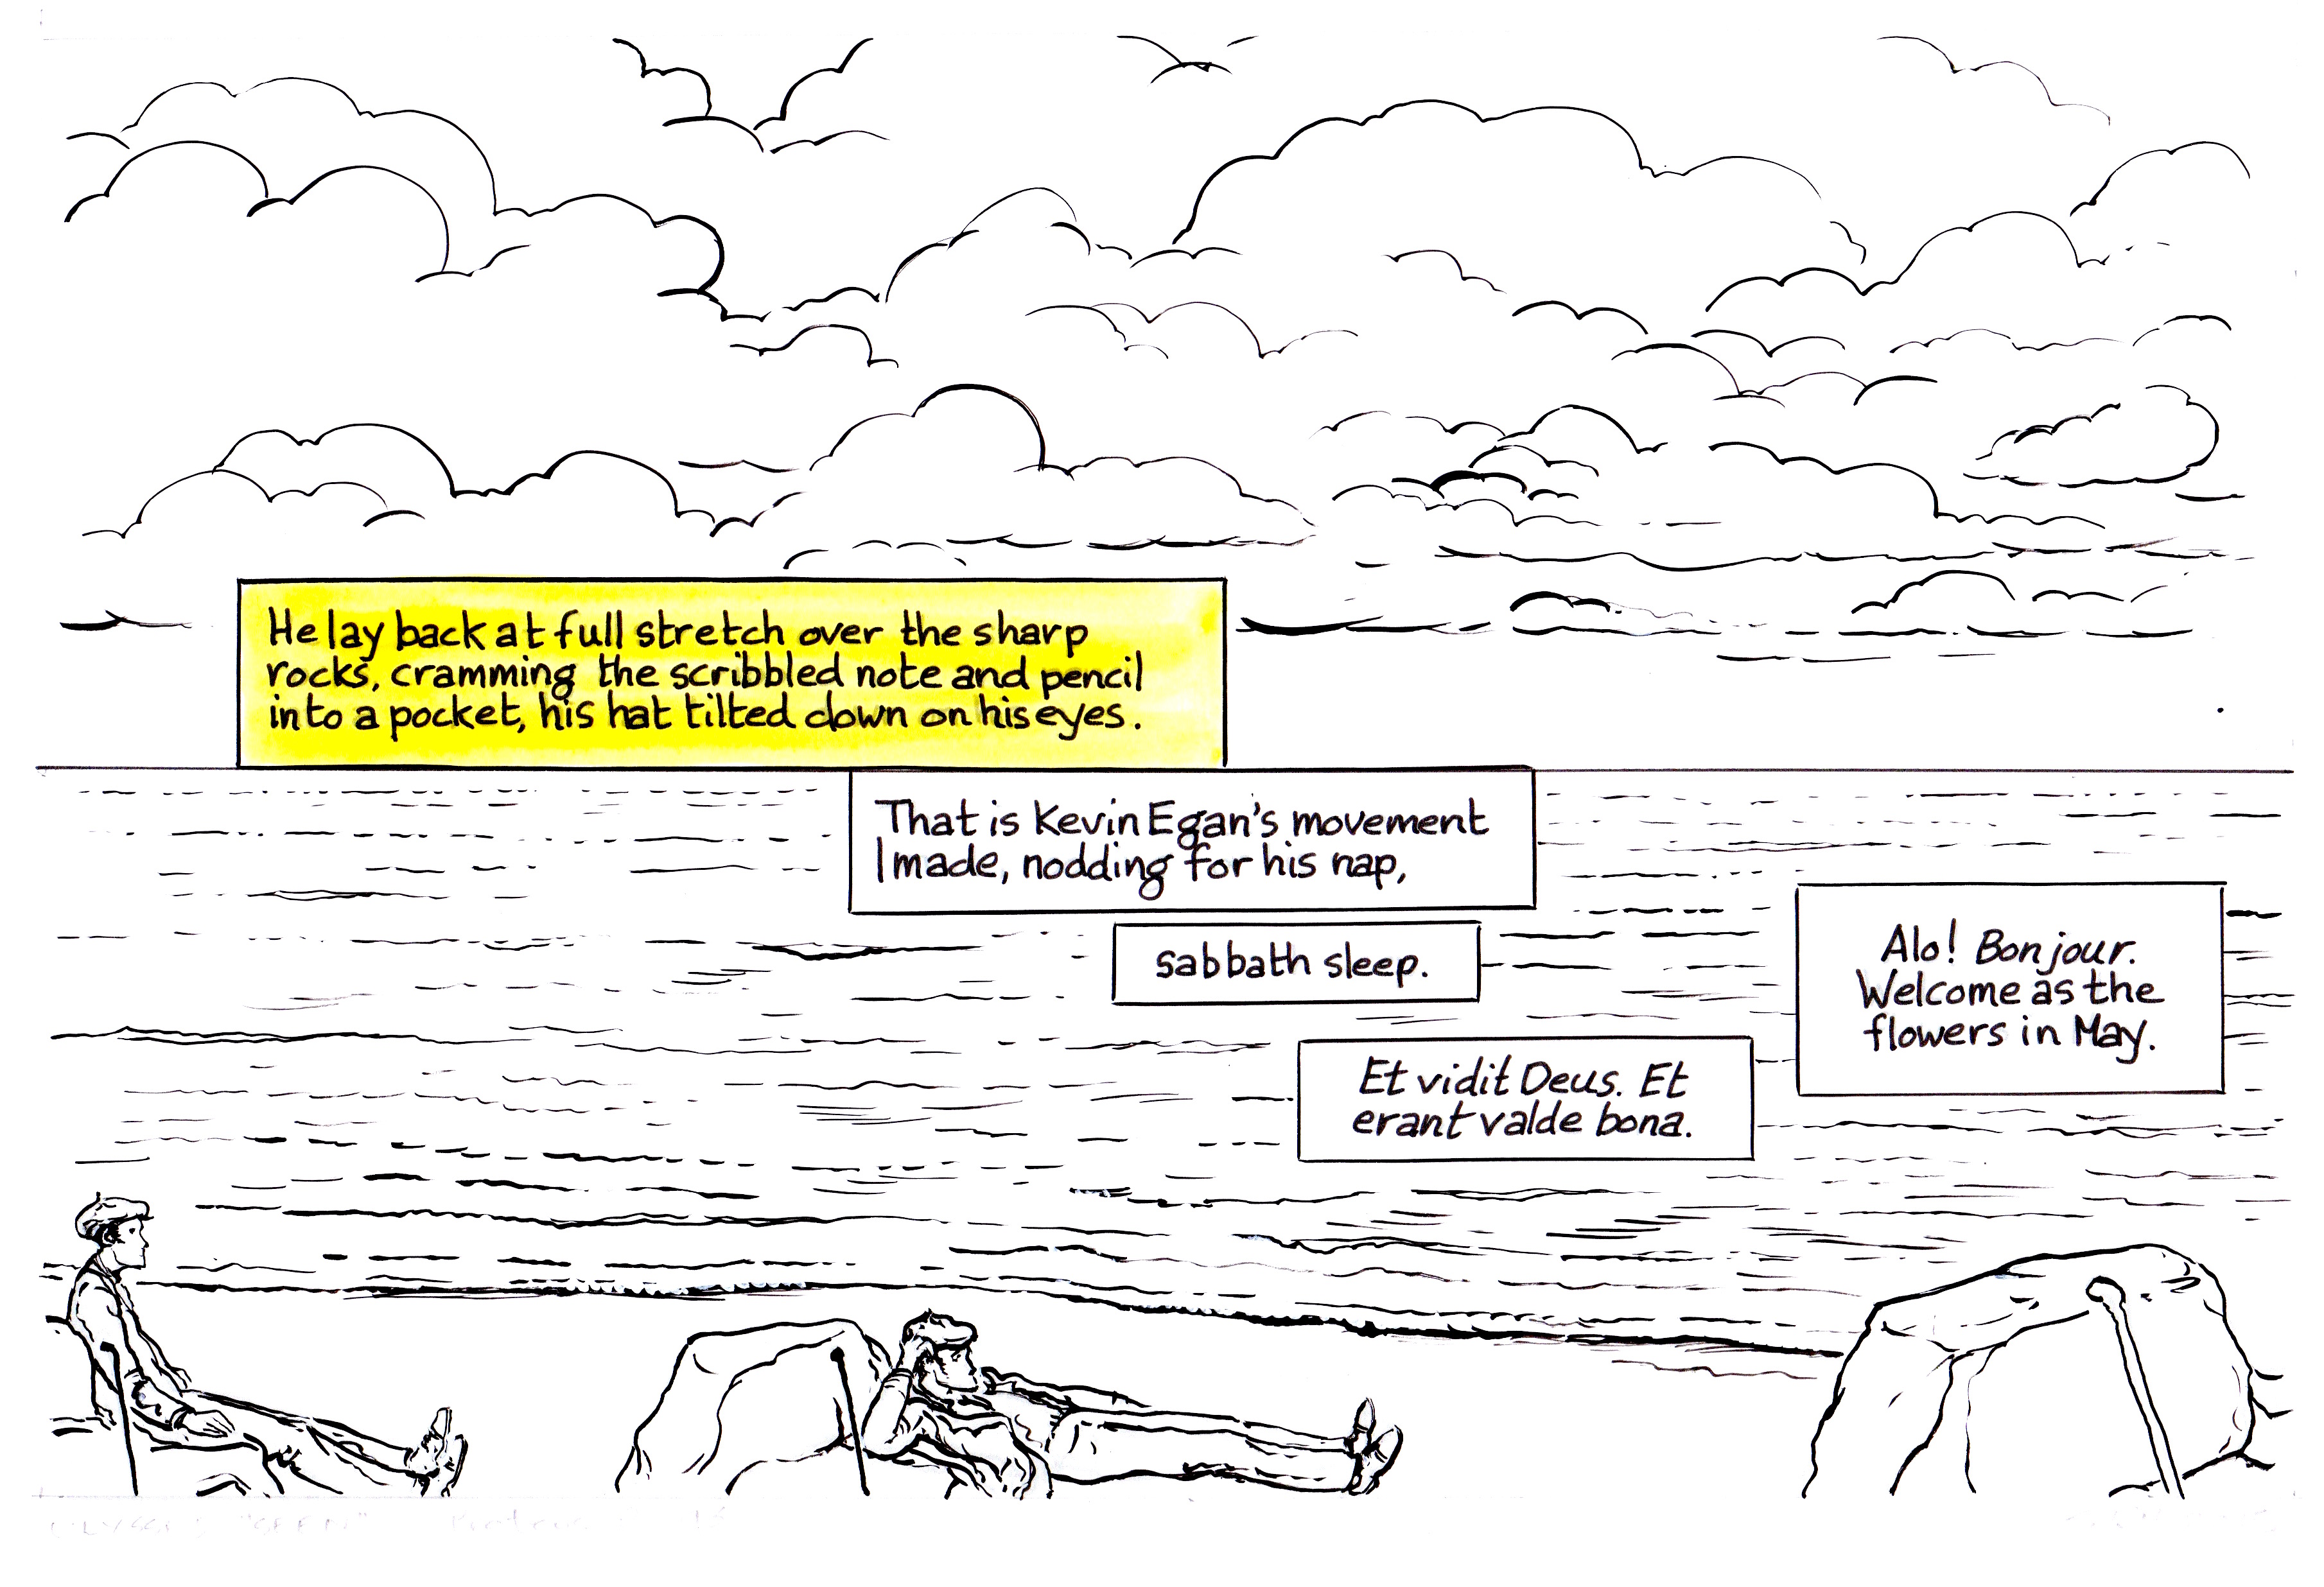 He lay back at full stretch over the sharp
rocks, cramming the scribbled note and pencil
into a pocket, his hat tilted down on his eyes.
That is Kevin Egan's movement
I made, nodding for his nap,
sabbath sleep.
Et vidit Deus. Et
erant valde bona.
Alo! Bonjour.
Welcome as the
flowers in May.
ULYSSES "SEEN"